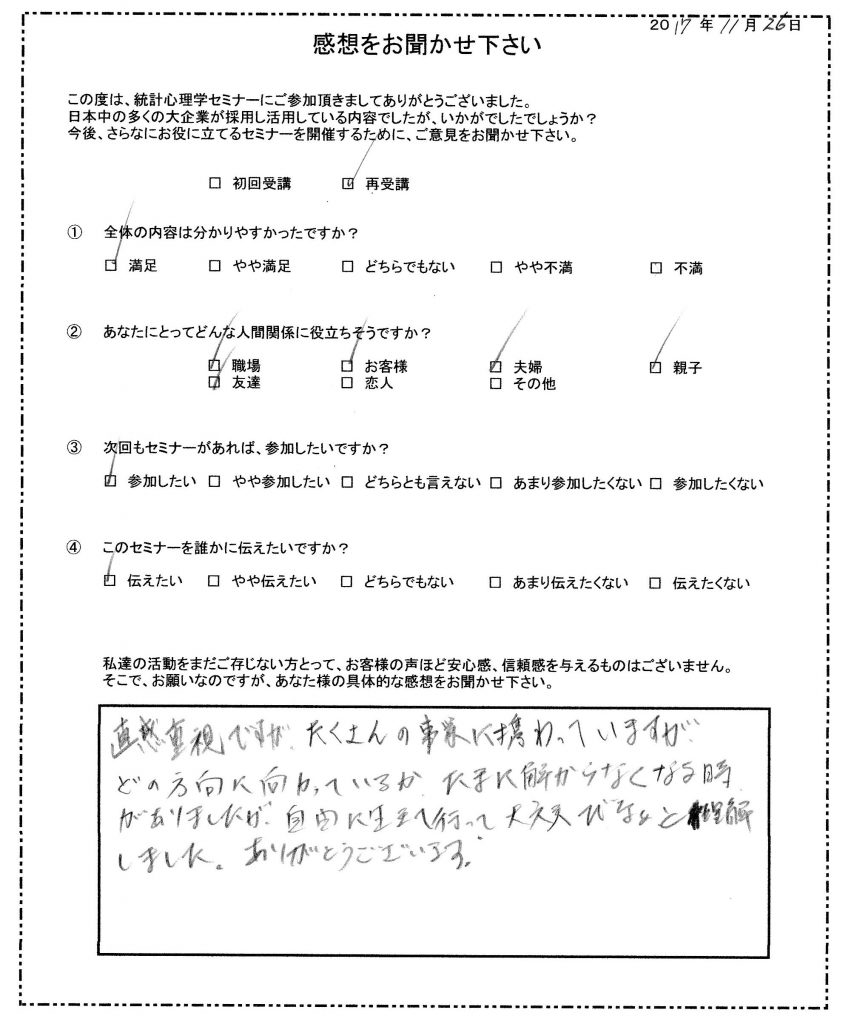 2017年11月26日
感想をお聞かせ下さい
この度は、統計心理学セミナーにご参加頂きましてありがとうございました。
日本中の多くの大企業が採用し活用している内容でしたが、いかがでしたでしょうか？
今後、さらなにお役に立てるセミナーを開催するために、ご意見をお聞かせ下さい。
□ 初回受講 □ 再受講
① 全体の内容は分かりやすかったですか？
□ 満足 □ やや満足 □ どちらでもない □ やや不満 □ 不満
② あなたにとってどんな人間関係に役立ちそうですか？
□ 職場 □ お客様 □ 夫婦 □ 親子
□ 友達 □ 恋人 □ その他
③ 次回もセミナーがあれば、参加したいですか？
□ 参加したい □ やや参加したい □ どちらとも言えない □ あまり参加したくない □ 参加したくない
④ このセミナーを誰かに伝えたいですか？
□ 伝えたい □ やや伝えたい □ どちらでもない □ あまり伝えたくない □ 伝えたくない
私達の活動をまだご存じない方とって、お客様の声ほど安心感、信頼感を与えるものはございません。
そこで、お願いなのですが、あなた様の具体的な感想をお聞かせ下さい。
直感重視ですが、たくさんの事業に携わっていますが、
どの方向に向かっているか、たまに解からなくなる時
がありましたが、自由に生きて行って大丈夫だなぁと理解
しました。ありがとうございます。